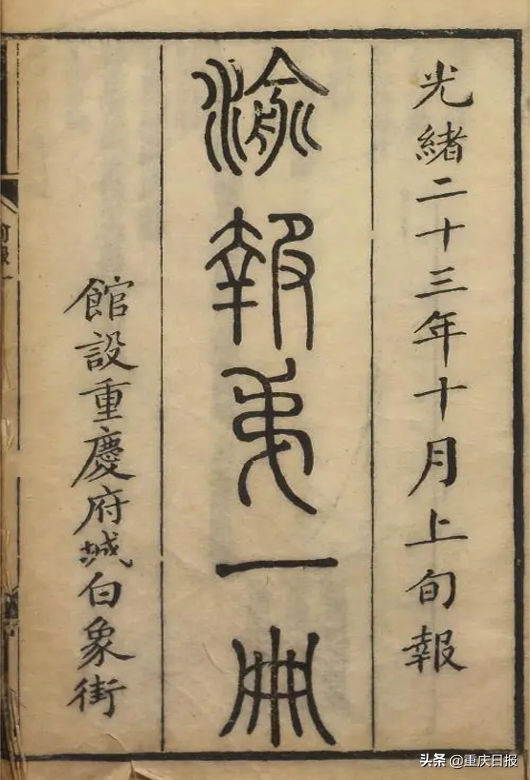 光緒二十三年十月上旬報
渝報弟一冊
館設重慶府城白象街
头条 @重庆日报